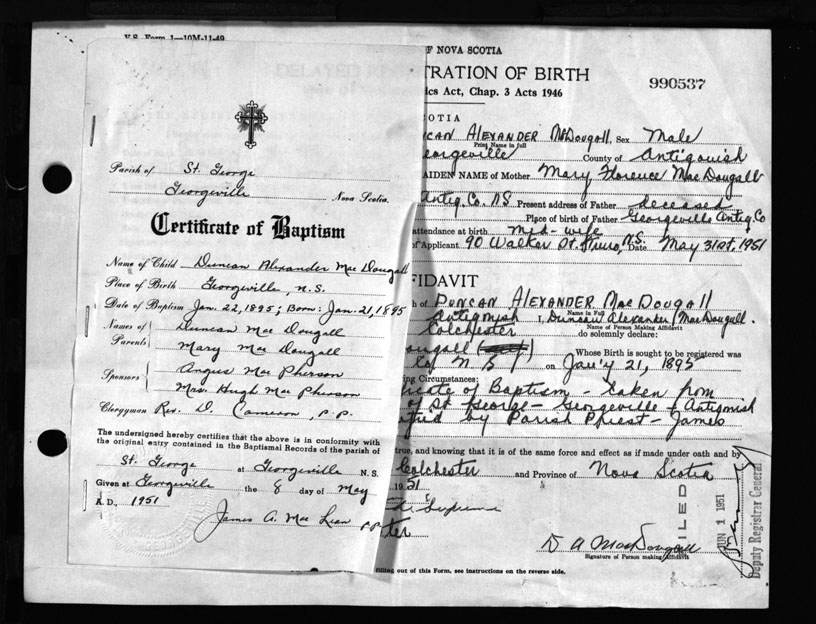 U.S. Form 1—10M-11-49
Parish of St. George
Georgeville Nova Scotia.
Certificate of Baptism
Name of Child Duncan Alexander Mac Dougall
Place of Birth Georgeville, N.S.
Date of Baptism Jan. 22, 1895; Born: Jan. 21, 1895
Names of Parents Duncan Mac Dougall
Mary Mac Dougall
Sponsors Angus Mac Pherson
Mrs. Hugh Mac Pherson
Clergyman Rev. D. Cameron, P.P.
The undersigned hereby certifies that the above is in conformity with
the original entry contained in the Baptismal Records of the parish of
St. George at Georgeville N.S.
Given at Georgeville the 8 day of May
A.D., 1951
James A. Mac Lean P.P.
OF NOVA SCOTIA
TRATION OF BIRTH
990537
ics Act, Chap. 3 Acts 1946
COTIA
NCAN ALEXANDER McDOUGALL, Sex Male
Print Name in full
eorgeville County of Antigonish
AIDEN NAME of Mother Mary Florence MacDougall
Antig. Co. N.S Present address of Father deceased
Place of birth of Father Georgeville Antig. Co
attendance at birth Mid-wife
of Applicant 90 Walker St. Truro, N.S. Date May 31st. 1951
FIDAVIT
h of DUNCAN ALEXANDER MACDOUGALL
Name in Full
Antigonish I, Duncan Alexander MacDougall.
Name of Person Making Affidavit
Colchester do solemnly declare:
ougall Whose Birth is sought to be registered was
Co N.S on Jan'y 21, 1895
ing Circumstances:
icate of Baptism - taken from
of St George - Georgeville Antigonish
ified by Parish Priest - James
true, and knowing that it is of the same force and effect as if made under oath and by
Colchester and Province of Nova Scotia
1951
Supreme
D A MacDougall
Signature of Person making Affidavit
filling out of this Form, see instructions on the reverse side.
FILED
JUN 1 1951
Deputy Registrar General